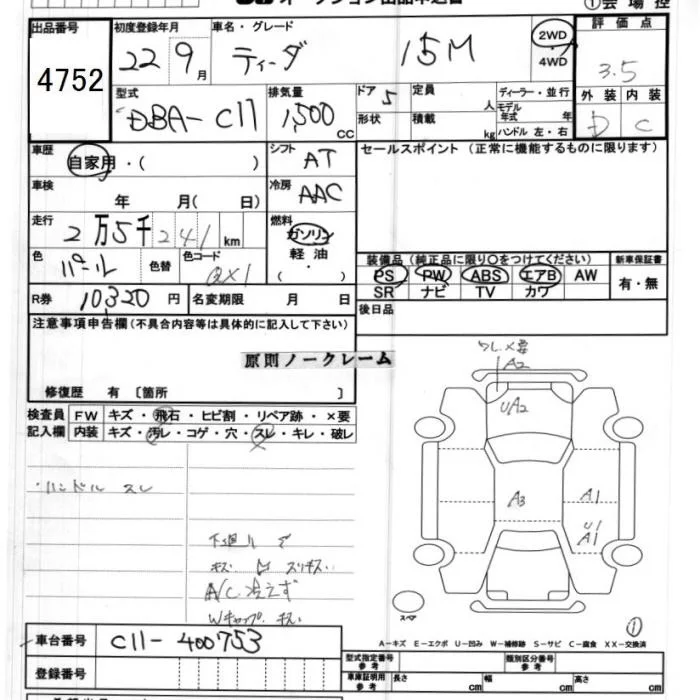 オークション出品申込書
①会場控
出品番号 初度登録年月 車名・グレード 2WD 評価点
4752 22 9月 ティーダ 15M ・4WD 3.5
型式 排気量 ドア 5 定員 人 ディーラー・並行 外装 内装
DBA-C11 1,500 cc 形状 積載 kg モデル年式 年 D C
ハンドル 左・右
車歴 自家用・( ) シフト AT セールスポイント (正常に機能するものに限ります)
車検 年 月( 日) 冷房 AAC
走行 2万5千241km 燃料 ガソリン
軽油
( ・ )
色 パール 色替 色コード QX1
装備品 (純正品に限り○をつけてください) 新車保証書
PS PW ABS エアB AW 有・無
SR ナビ TV カワ
R券 10320円 名変期限 月 日 後日品
注意事項申告欄(不具合内容等は具体的に記入して下さい)
原則ノークレーム
修復歴 有 〔箇所 〕
検査員 FW キズ・飛石・ヒビ割・リペア跡・×要
記入欄 内装 キズ・汚レ・コゲ・穴・スレ・キレ・破レ
ワレ×要
A2
UA2
A3
A1
U1
A1
・ハンドル スレ
下廻り サビ
キズ スリキズ
A/C 冷えず
Wキャップ キズ
スペア
①
A-キズ E-エクボ U-凹み W-補修跡 S-サビ C-腐食 XX-交換済
車台番号 C11-400753
登録番号
型式指定番号 参考 類別区分番号 参考
車庫証明用 参考 長さ cm 幅 cm 高さ cm